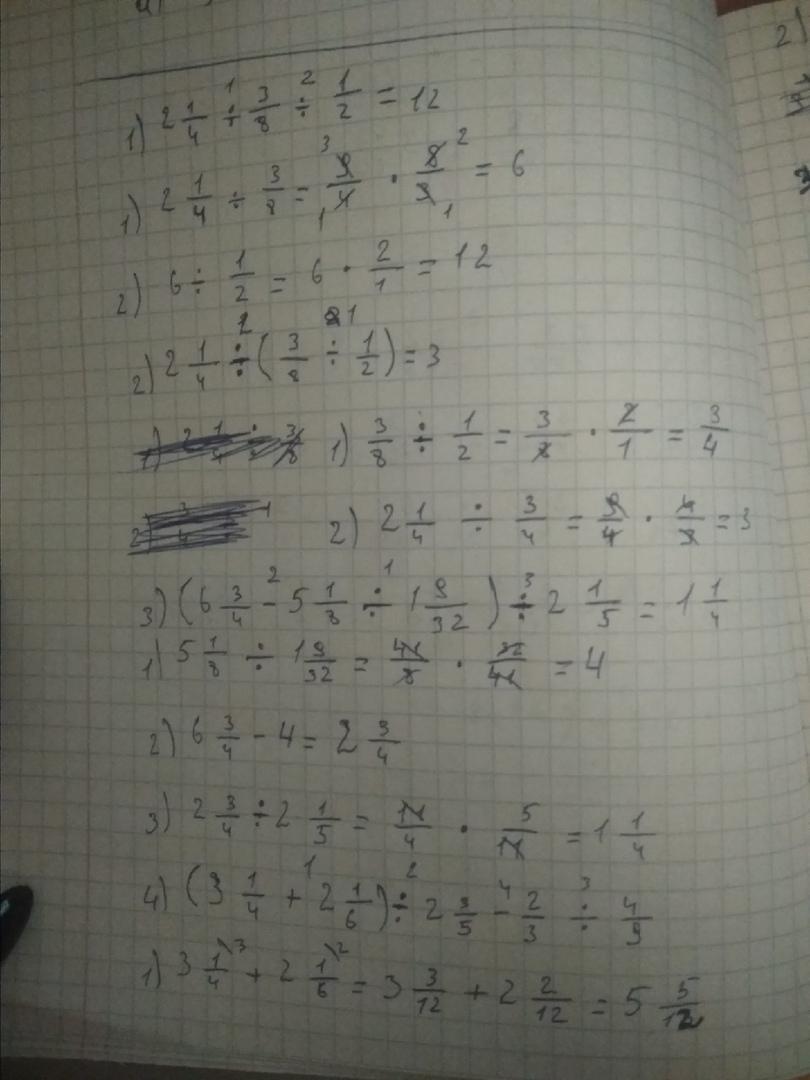 1) 2 1/4 ÷ 3/8 ÷ 1/2 = 12
1) 2 1/4 ÷ 3/8 = 9/4 · 8/3 = 6
2) 6 ÷ 1/2 = 6 · 2/1 = 12
2) 2 1/4 ÷ (3/8 ÷ 1/2) = 3
1) 3/8 ÷ 1/2 = 3/8 · 2/1 = 3/4
2) 2 1/4 ÷ 3/4 = 9/4 · 4/3 = 3
3) (6 3/4 - 5 1/8 ÷ 1 9/32) ÷ 2 1/5 = 1 1/4
1) 5 1/8 ÷ 1 9/32 = 41/8 · 32/41 = 4
2) 6 3/4 - 4 = 2 3/4
3) 2 3/4 ÷ 2 1/5 = 11/4 · 5/11 = 1 1/4
4) (3 1/4 + 2 1/6) ÷ 2 3/5 - 2/3 ÷ 4/9
1) 3 1/4 \3 + 2 1/6 \2 = 3 3/12 + 2 2/12 = 5 5/12